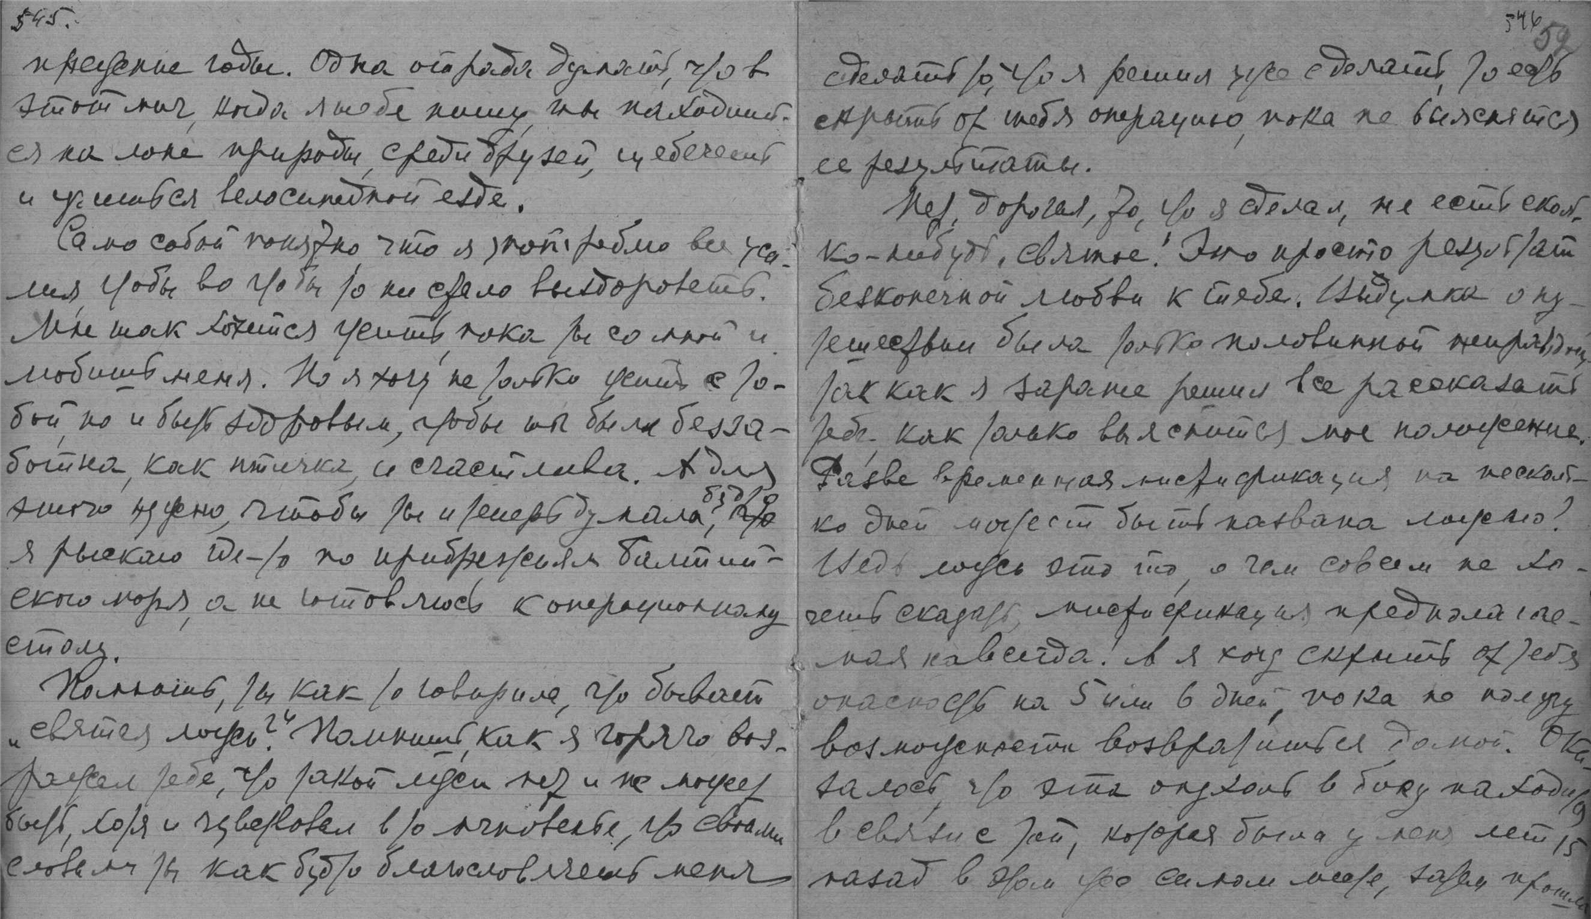 545.
прежние годы. Одна отрада думать, что в
этот миг, когда я тебе пишу, ты находишь-
ся на лоне природы, среди друзей, щебечешь
и учишься велосипедной езде.
Само собой понятно что я употреблю все уси-
лия, чтобы во что бы то ни стало выздороветь.
Мне так хочется жить, пока ты со мной и
любишь меня. Но я хочу не только жить с то-
бой, но и быть здоровым, чтобы ты была безза-
ботна, как птичка, и счастлива. А для
этого нужно, чтобы ты и теперь думала, будто
я рыскаю где-то по прибрежиям Балтий-
ского моря, а не готовлюсь к операционному
столу.
Помнишь, ты как-то говорила, что бывает
„святая ложь?“ Помнишь, как я горячо воз-
ражал тебе, что такой лжи нет и не может
быть, хотя и чувствовал в то мгновенье, что своими
словами ты как будто благословляешь меня
546
59
сделать то, что я решил уже сделать, то есть
скрыть от тебя операцию, пока не выяснятся
ее результаты.
Нет, дорогая, то, что я сделал, не есть сколь-
ко-нибудь святое! Это просто результат
безконечной любви к тебе. Выдумка о пу-
тешествии была только половинной неправдой,
так как я заранее решил все рассказать
тебе, как только выяснится мое положение.
Разве временная мистификация на несколь-
ко дней может быть названа ложью?
Ведь ложь это то, о чем совсем не хо-
чешь сказать, мистификация предполагае-
мая навсегда! А я хочу скрыть от тебя
опасность на 5 или 6 дней, пока не получу
возможности возвратиться домой. Ока-
залось, что эта опухоль в боку находится
в связи с той, которая была у меня лет 15
назад в этом же самом месте, затем прошла